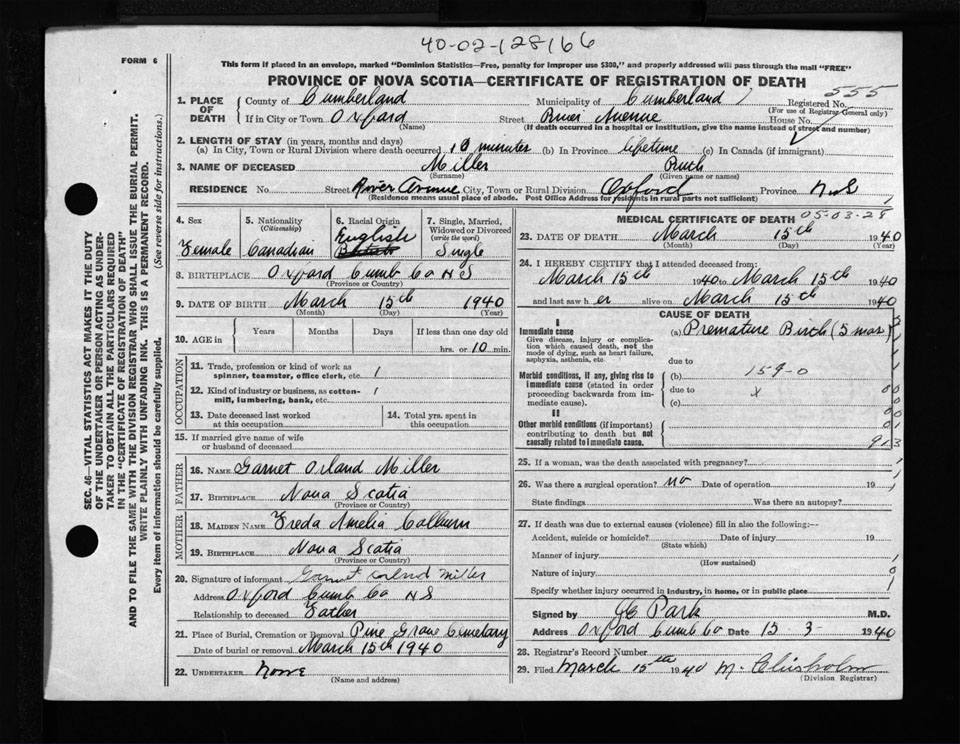 40-02-128166
FORM 6
This form if placed in an envelope, marked "Dominion Statistics—Free, penalty for improper use $300," and properly addressed will pass through the mail "FREE"
PROVINCE OF NOVA SCOTIA—CERTIFICATE OF REGISTRATION OF DEATH
555
1. PLACE OF DEATH County of Cumberland Municipality of Cumberland Registered No.
(For use of Registrar General only)
If in City or Town Oxford Street River Avenue House No.
(Name) (If death occurred in a hospital or institution, give the name instead of street and number)
2. LENGTH OF STAY (in years, months and days)
(a) In City, Town or Rural Division where death occurred 10 minutes (b) In Province lifetime (c) In Canada (if immigrant)
3. NAME OF DECEASED Miller Ruth
(Surname) (Given name or names)
RESIDENCE No. Street River Avenue City, Town or Rural Division Oxford Province N S
(Residence means usual place of abode. Post Office Address for residents in rural parts not sufficient)
4. Sex 5. Nationality (Citizenship) 6. Racial Origin 7. Single, Married, Widowed or Divorced (write the word)
Female Canadian English Single
8. BIRTHPLACE Oxford Cumb Co N S
(Province or Country)
9. DATE OF BIRTH March 15th 1940
(Month) (Day) (Year)
10. AGE in Years Months Days If less than one day old
hrs. or 10 min.
OCCUPATION
11. Trade, profession or kind of work as spinner, teamster, office clerk, etc.
12. Kind of industry or business, as cotton-mill, lumbering, bank, etc.
13. Date deceased last worked at this occupation 14. Total yrs. spent in this occupation
15. If married give name of wife or husband of deceased
FATHER
16. NAME Garnet Orland Miller
17. BIRTHPLACE Nova Scotia
(Province or Country)
MOTHER
18. MAIDEN NAME Freda Amelia Colburn
19. BIRTHPLACE Nova Scotia
(Province or Country)
20. Signature of informant Garnet Orland Miller
Address Oxford Cumb Co N S
Relationship to deceased Father
21. Place of Burial, Cremation or Removal Pine Grove Cemetary
Date of burial or removal March 15th 1940
22. UNDERTAKER None
(Name and address)
MEDICAL CERTIFICATE OF DEATH 05-03-28
23. DATE OF DEATH March 15th 1940
(Month) (Day) (Year)
24. I HEREBY CERTIFY that I attended deceased from:
March 15th 1940 to March 15th 1940
and last saw h er alive on March 15th 1940
CAUSE OF DEATH
I
Immediate cause (a) Premature Birth (5 mos)
Give disease, injury or complication which caused death, not the mode of dying, such as heart failure, asphyxia, asthenia, etc.
due to
Morbid conditions, if any, giving rise to immediate cause (stated in order proceeding backwards from immediate cause).
(b) 159-0
due to x
(c)
II
Other morbid conditions (if important) contributing to death but not causally related to immediate cause.
913
25. If a woman, was the death associated with pregnancy?
26. Was there a surgical operation? no Date of operation 19
State findings Was there an autopsy?
27. If death was due to external causes (violence) fill in also the following:—
Accident, suicide or homicide? Date of injury 19
(State which)
Manner of injury
(How sustained)
Nature of injury
Specify whether injury occurred in industry, in home, or in public place
Signed by Park M.D.
Address Oxford Cumb Co Date 15-3- 1940
28. Registrar's Record Number
29. Filed March 15th 1940 M. Chisholm
(Division Registrar)
SEC. 46—VITAL STATISTICS ACT MAKES IT THE DUTY
OF THE UNDERTAKER OR PERSON ACTING AS UNDER-
TAKER TO OBTAIN ALL THE PARTICULARS REQUIRED
IN THE "CERTIFICATE OF REGISTRATION OF DEATH"
AND TO FILE THE SAME WITH THE DIVISION REGISTRAR WHO SHALL ISSUE THE BURIAL PERMIT.
WRITE PLAINLY WITH UNFADING INK. THIS IS A PERMANENT RECORD.
Every item of information should be carefully supplied. (See reverse side for instructions.)